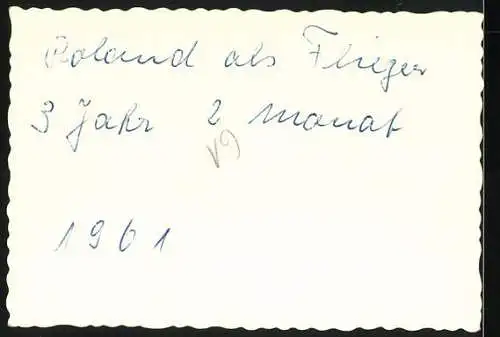 Roland als Flieger
3 Jahr 2 Monat
1961